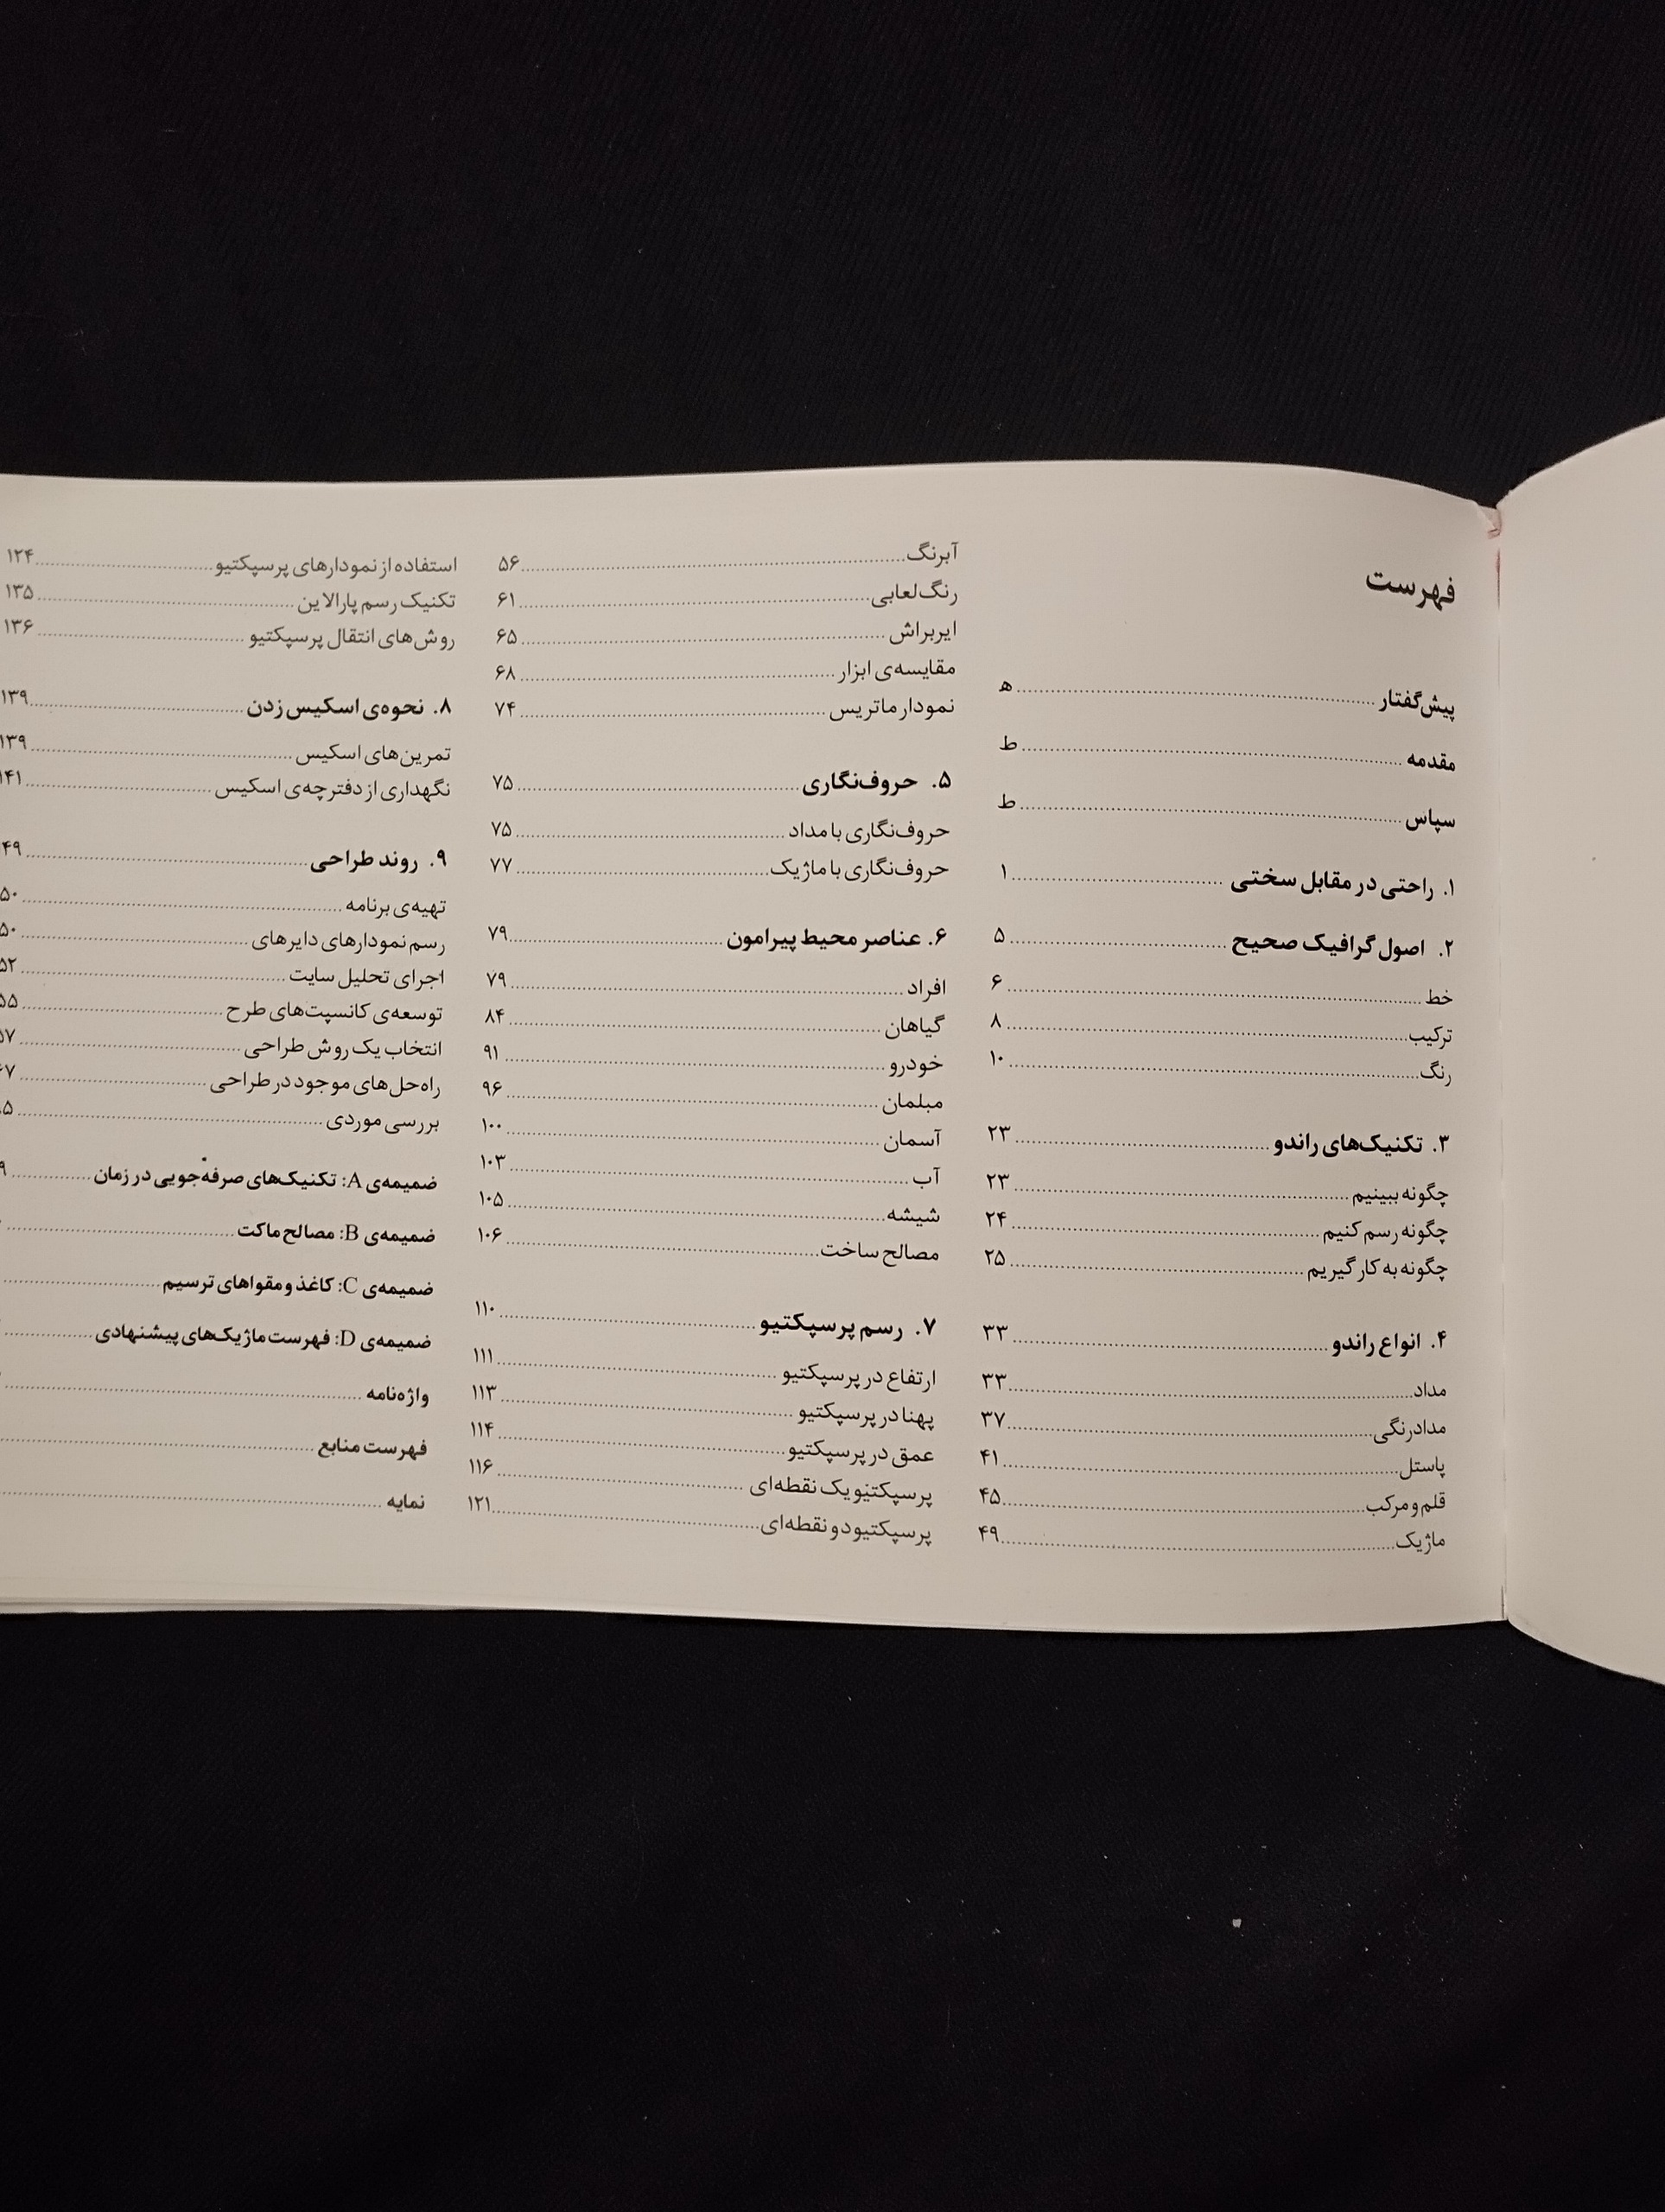 فهرست
پیش‌گفتار ..... ه
مقدمه ..... ط
سپاس ..... ط
۱. راحتی در مقابل سختی ..... ۱
۲. اصول گرافیک صحیح ..... ۵
خط ..... ۶
ترکیب ..... ۸
رنگ ..... ۱۰
۳. تکنیک‌های راندو ..... ۲۳
چگونه ببینیم ..... ۲۳
چگونه رسم کنیم ..... ۲۴
چگونه به کار گیریم ..... ۲۵
۴. انواع راندو ..... ۳۳
مداد ..... ۳۳
مدادرنگی ..... ۳۷
پاستل ..... ۴۱
قلم و مرکب ..... ۴۵
ماژیک ..... ۴۹
آبرنگ ..... ۵۶
رنگ لعابی ..... ۶۱
ایربراش ..... ۶۵
مقایسه‌ی ابزار ..... ۶۸
نمودار ماتریس ..... ۷۴
۵. حروف‌نگاری ..... ۷۵
حروف‌نگاری با مداد ..... ۷۵
حروف‌نگاری با ماژیک ..... ۷۷
۶. عناصر محیط پیرامون ..... ۷۹
افراد ..... ۷۹
گیاهان ..... ۸۴
خودرو ..... ۹۱
مبلمان ..... ۹۶
آسمان ..... ۱۰۰
آب ..... ۱۰۳
شیشه ..... ۱۰۵
مصالح ساخت ..... ۱۰۶
۷. رسم پرسپکتیو ..... ۱۱۰
ارتفاع در پرسپکتیو ..... ۱۱۱
پهنا در پرسپکتیو ..... ۱۱۳
عمق در پرسپکتیو ..... ۱۱۴
پرسپکتیو یک نقطه‌ای ..... ۱۱۶
پرسپکتیو دو نقطه‌ای ..... ۱۲۱
استفاده از نمودارهای پرسپکتیو ..... ۱۲۴
تکنیک رسم پارالاین ..... ۱۳۵
روش‌های انتقال پرسپکتیو ..... ۱۳۶
۸. نحوه‌ی اسکیس زدن ..... ۱۳۹
تمرین‌های اسکیس ..... ۱۳۹
نگهداری از دفترچه‌ی اسکیس ..... ۱۴۱
۹. روند طراحی .....
تهیه‌ی برنامه .....
رسم نمودارهای دایره‌ای .....
اجرای تحلیل سایت .....
توسعه‌ی کانسپت‌های طرح .....
انتخاب یک روش طراحی .....
راه‌حل‌های موجود در طراحی .....
بررسی موردی .....
ضمیمه‌ی A: تکنیک‌های صرفه‌جویی در زمان .....
ضمیمه‌ی B: مصالح ماکت .....
ضمیمه‌ی C: کاغذ و مقواهای ترسیم .....
ضمیمه‌ی D: فهرست ماژیک‌های پیشنهادی .....
واژه‌نامه .....
فهرست منابع .....
نمایه .....